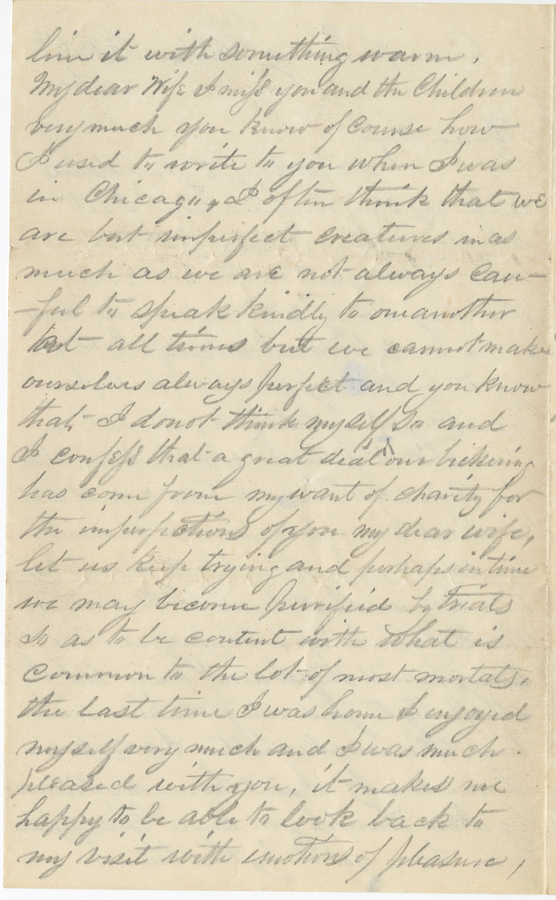 line it with something warm,
My dear Wife I miss you and the Children
very much you know of course how
I used to write to you when I was
in Chicago, I often think that we
are but imperfect creatures inas
much as we are not always care-
-ful to speak kindly to oneanother
at all times but we cannot make
ourselves always perfect and you know
that I do not think myself so and
I confess that a great deal ^ our bickering
has come from my want of charity for
the imperfections of you my dear wife,
let us keep trying and perhaps in time
we may become purified by trials
so as to be content with what is
common to the lot of most mortals,
the last time I was home I enjoyed
myself very much and I was much
pleased with you, it makes me
happy to be able to look back to
my visit with emotions of pleasure,